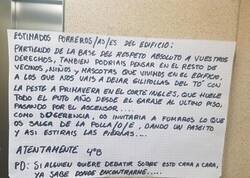 ESTIMADOS PORREROS/AS/ES DEL EDIFICIO:
PARTIENDO DE LA BASE DEL RESPETO ABSOLUTO A VUESTROS
DERECHOS, TAMBIEN PODRIAIS PENSAR EN EL RESTO DE
VECINOS, NIÑOS Y MASCOTAS QUE VIVIMOS EN EL EDIFICIO,
A LOS QUE NOS VAIS A DEJAR GILIPOLLAS DEL TÓ CON
LA PESTE A PRIMAVERA EN EL CORTE INGLÉS, QUE HUELE
TODO EL PUTO AÑO DESDE EL GARAJE AL ULTIMO PISO,
PASANDO POR EL ASCENSOR...
COMO DEFERENCIA, OS INVITARIA A FUMAROS LO QUE
OS SALGA DE LA FOLLA/O/E, DANDO UN PASEITO
Y ASI ESTIRAIS LAS PIERNAS...
ATENTAMENTE 4ºB
PD: SI ALGUIEN QUIERE DEBATIR SOBRE ESTO CARA A CARA,
YA SABE DONDE ENCONTRARME....